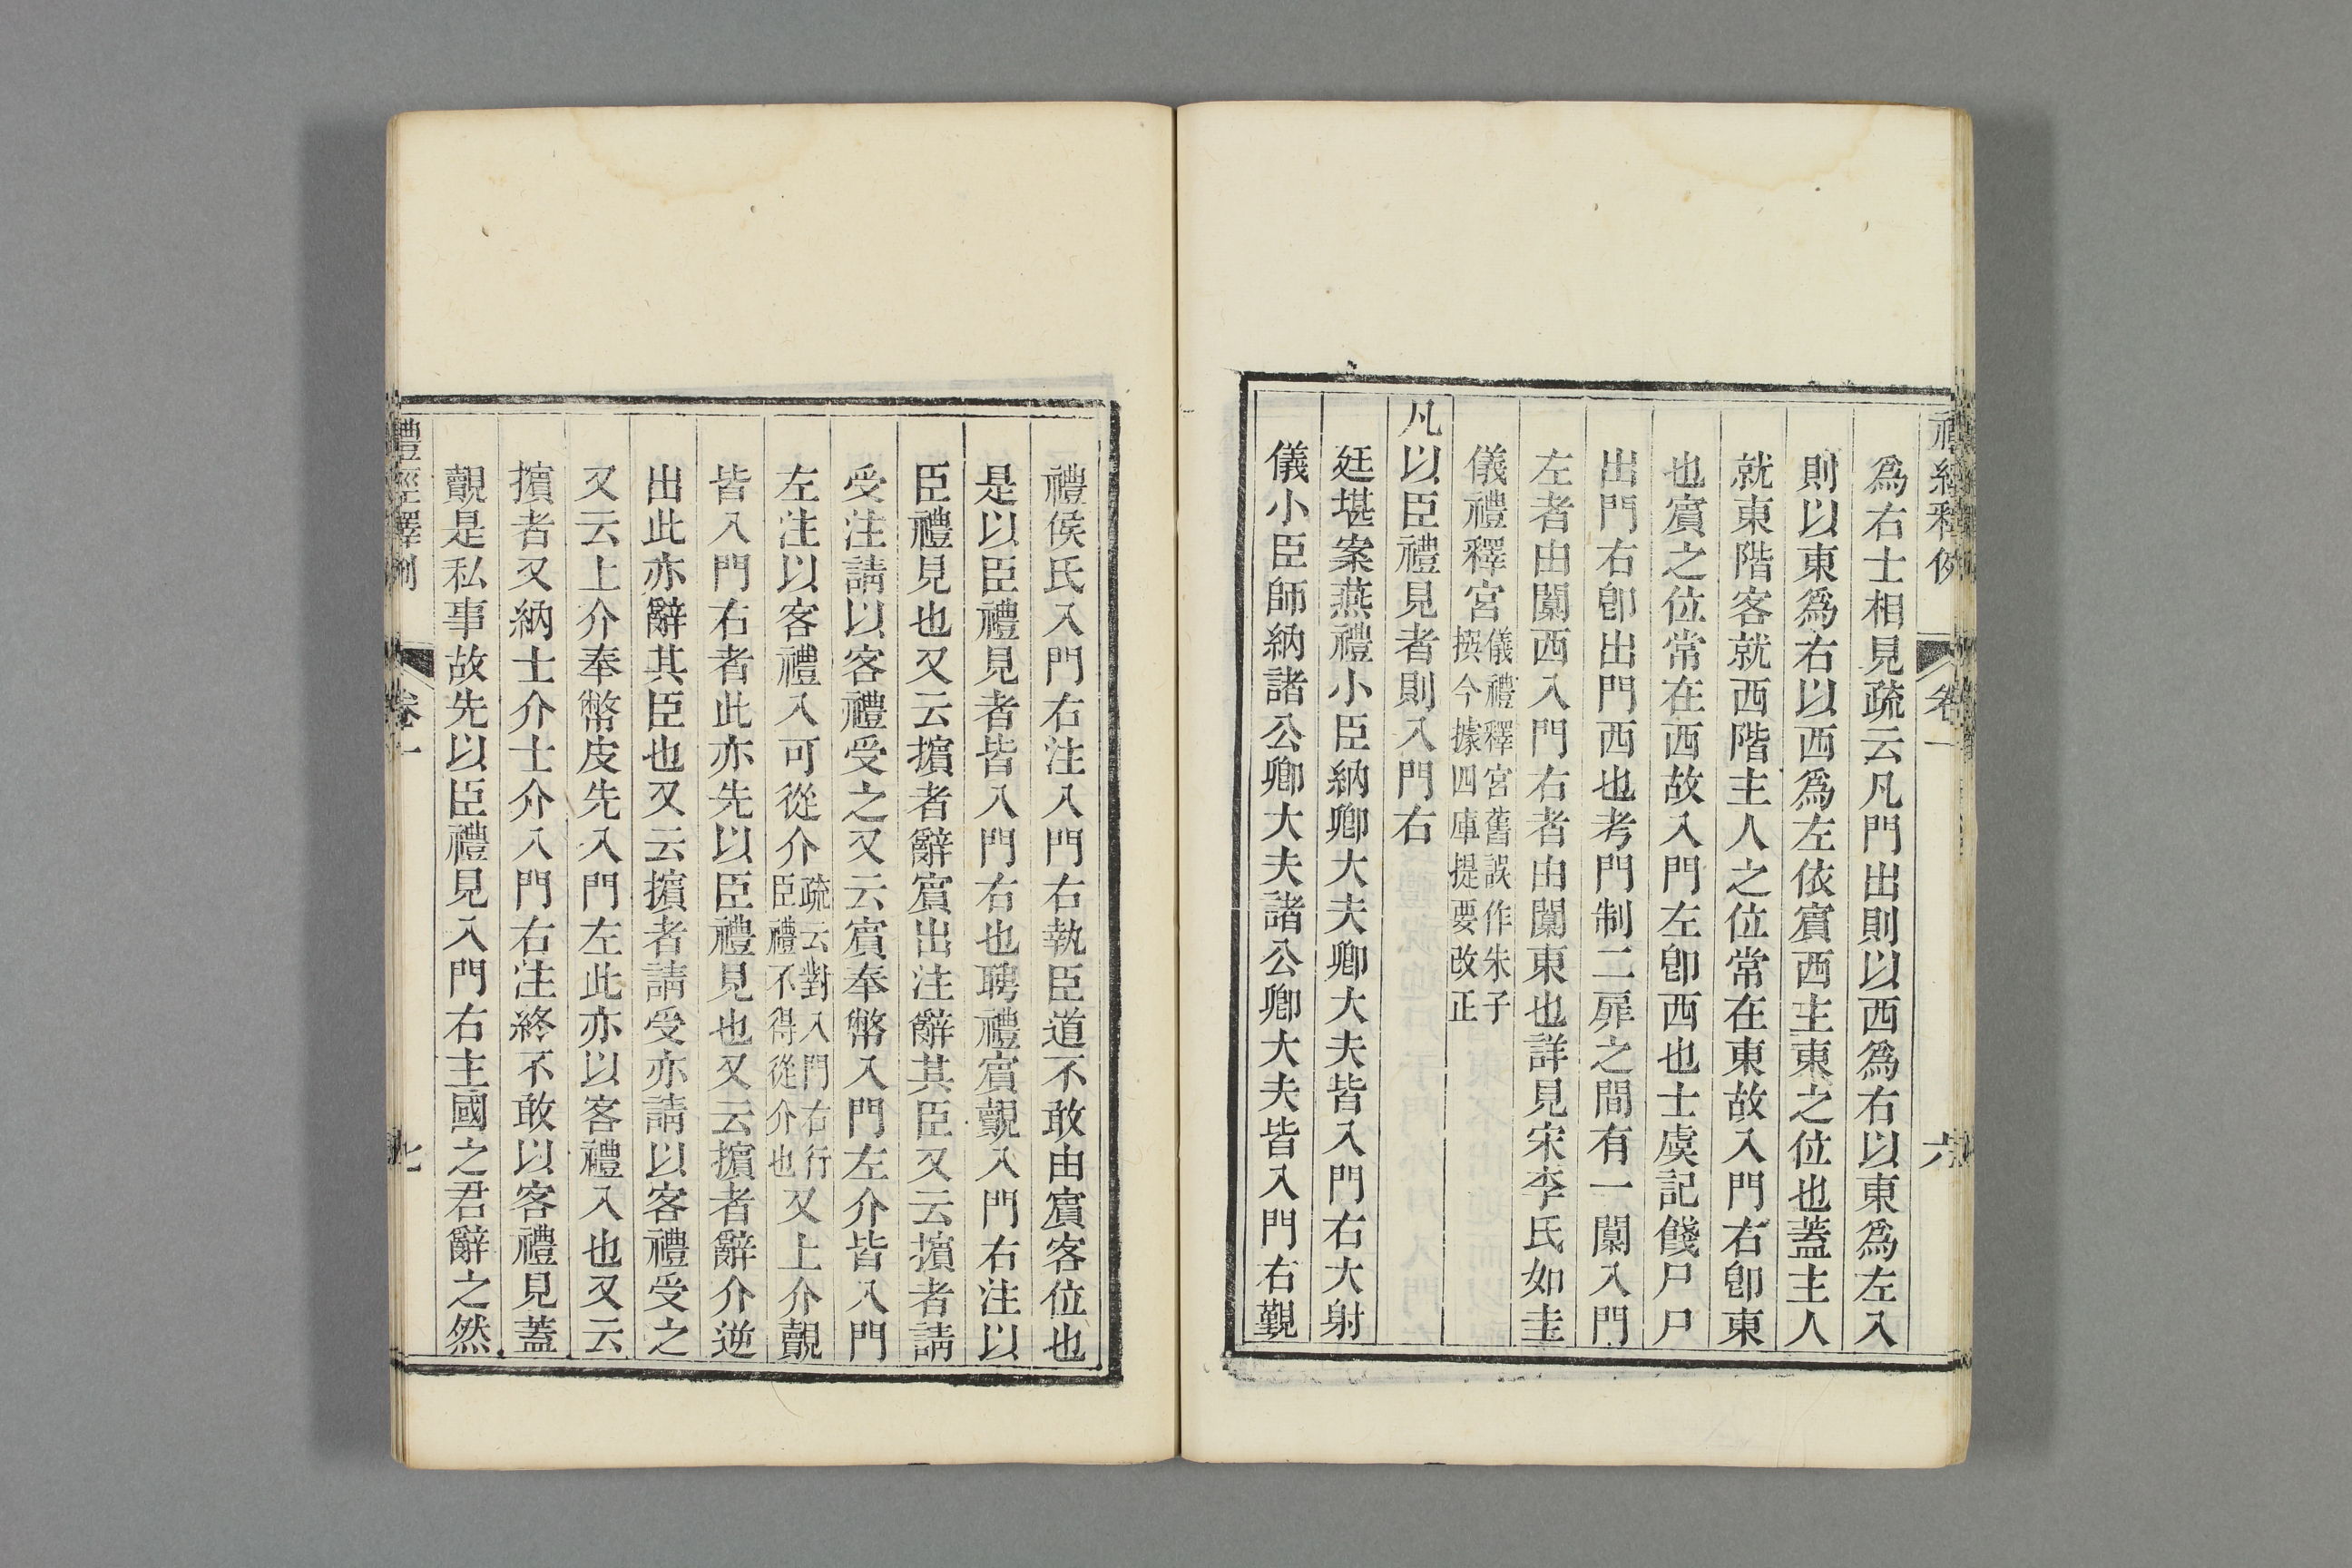 禮經釋例 卷一 六
爲右士相見疏云凡門出則以西爲右以東爲左入
則以東爲右以西爲左依賓西主東之位也蓋主人
就東階客就西階主人之位常在東故入門右卽東
也賓之位常在西故入門左卽西也士虞記餞尸尸
出門右卽出門西也考門制二扉之間有一闑入門
左者由闑西入門右者由闑東也詳見宋李氏如圭
儀禮釋宮儀禮釋宮舊誤作朱子撰今據四庫提要改正
凡以臣禮見者則入門右
廷堪案燕禮小臣納卿大夫卿大夫皆入門右大射
儀小臣師納諸公卿大夫諸公卿大夫皆入門右覲
禮侯氏入門右注入門右執臣道不敢由賓客位也
是以臣禮見者皆入門右也聘禮賓覿入門右注以
臣禮見也又云擯者辭賓出注辭其臣又云擯者請
受注請以客禮受之又云賓奉幣入門左介皆入門
左注以客禮入可從介疏云對入門右行臣禮不得從介也又上介覿
皆入門右者此亦先以臣禮見也又云擯者辭介逆
出此亦辭其臣也又云擯者請受亦請以客禮受之
又云上介奉幣皮先入門左此亦以客禮入也又云
擯者又納士介士介入門右注終不敢以客禮見蓋
覿是私事故先以臣禮見入門右主國之君辭之然
禮經釋例 卷一 七